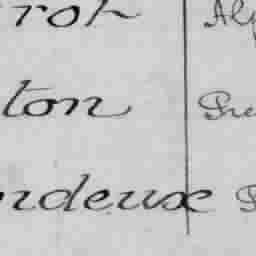 rot Al
ton Pre
rdeux P